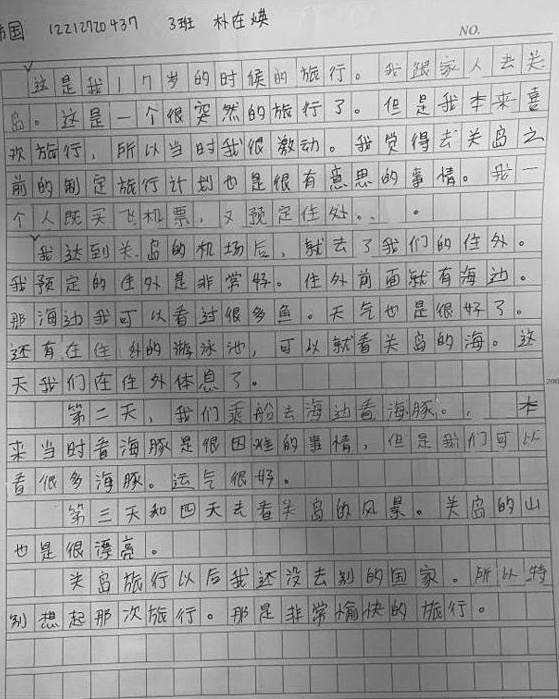 韩国 12212720437 3班 朴在煐
NO.
这是我17岁的时候的旅行。我跟家人去关
岛。这是一个很突然的旅行了。但是我本来喜
欢旅行，所以当时我很激动。我觉得去关岛之
前的制定旅行计划也是很有意思的事情。我一
个人既买飞机票，又预定住处。
我达到关岛的机场后，就去了我们的住外。
我预定的住外是非常好。住外前面就有海边。
那海边我可以看过很多鱼。天气也是很好了。
还有在住外的游泳池，可以就看关岛的海。这
天我们在住外体息了。
第二天，我们乘船去海边看海豚。本
来当时看海豚是很困难的事情，但是我们可以
看很多海豚。运气很好。
第三天和四天去看关岛的风景。关岛的山
也是很漂亮。
关岛旅行以后我还没去别的国家。所以特
别想起那次旅行。那是非常愉快的旅行。
200